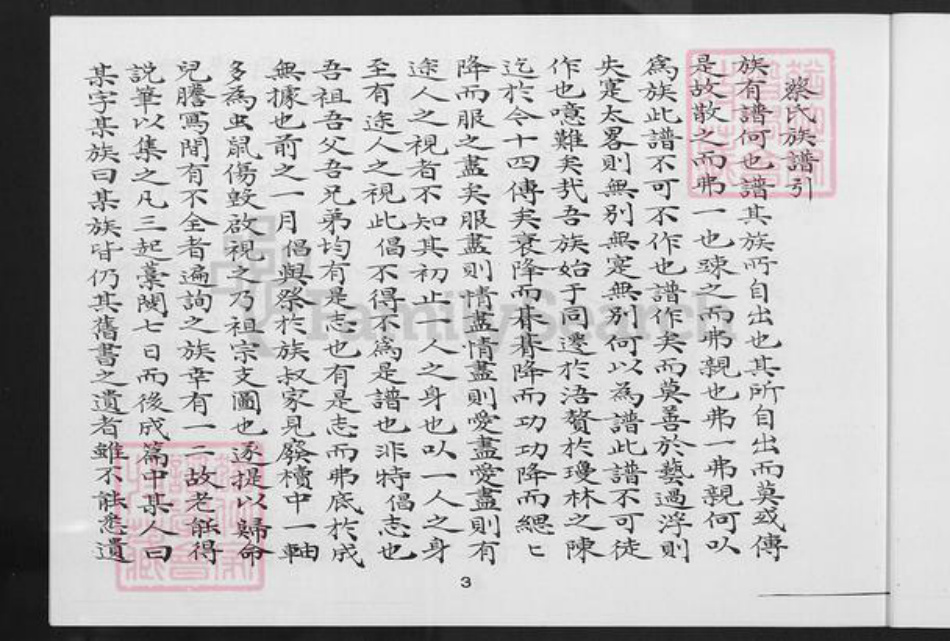 蔡氏族譜引
族有譜何也譜其族所自出也其所自出而莫或傳
是故散之而弗一也疎之而弗親也弗一弗親何以
為族此譜不可不作也譜作矣而莫善於藝過浮則
失寔太畧則無別無寔無別何以為譜此譜不可徒
作也噫難矣哉吾族始于同遷於浯贅於瓊林之陳
迄於今十四傳矣衰降而朞朞降而功功降而緦緦
降而服之盡矣服盡則情盡情盡則愛盡愛盡則有
途人之視者不知其初止一人之身也以一人之身
至有途人之視此倡不得不為是譜也非特倡志也
吾祖吾父吾兄弟均有是志也有是志而弗底於成
無據也前之一月倡與祭於族叔家見廢櫝中一軸
多為虫鼠傷蝕啟視之乃祖宗支圖也遂提以歸命
兒謄寫間有不全者遍詢之族幸有一二故老能得
說筆以集之凡三起藁閱七日而後成篇中某人曰
某字某族曰某族皆仍其舊書之遺者雖不能悉遺
3
FamilySearch